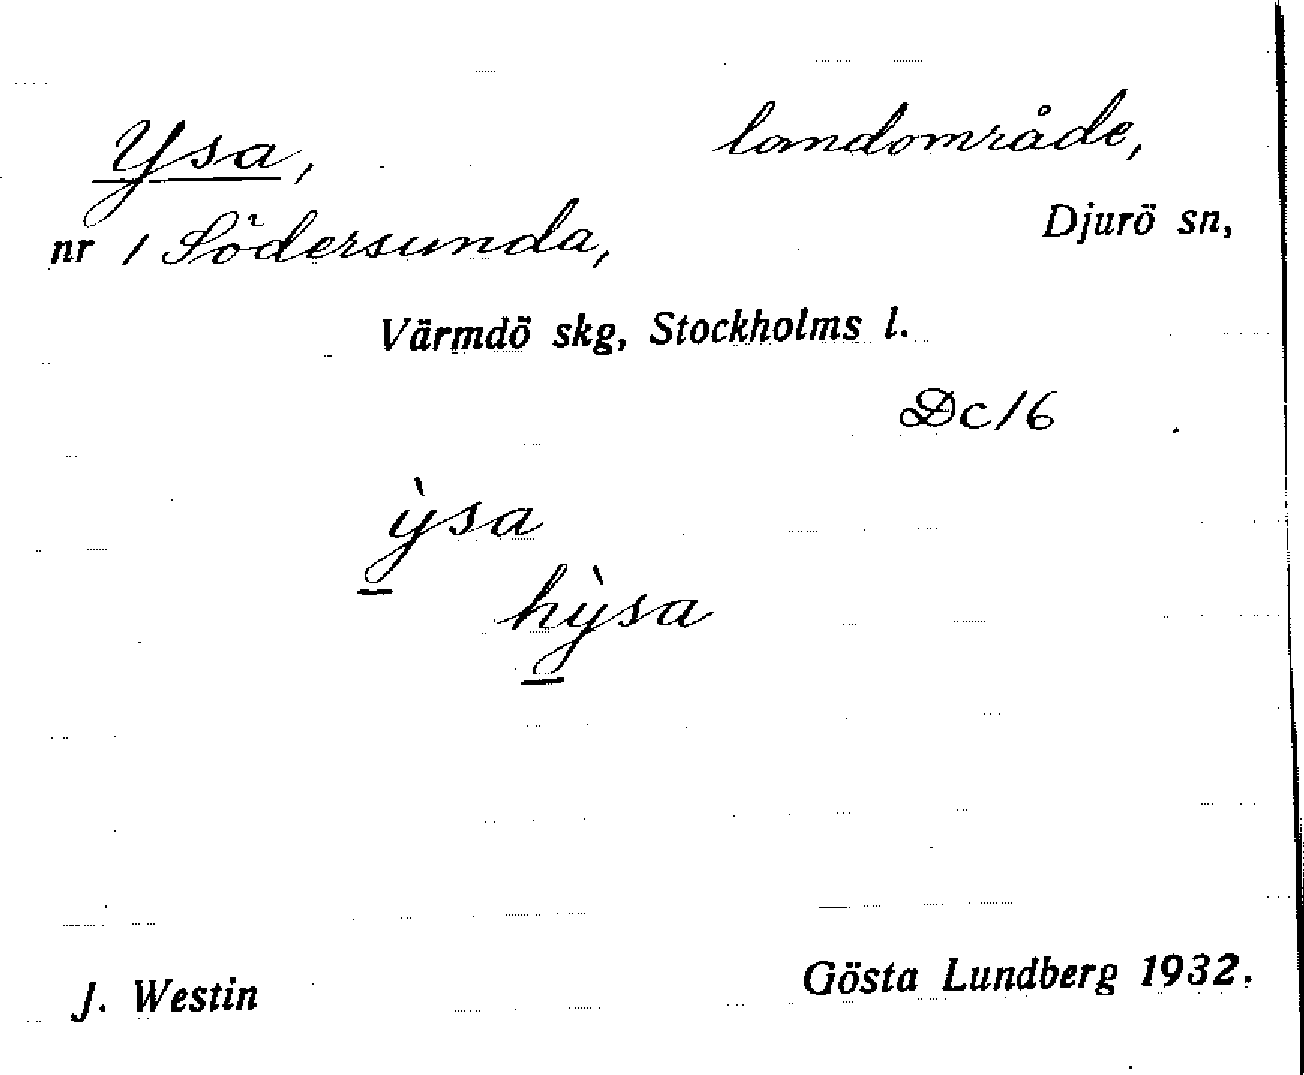 Ysa, landområde,
nr 1 Södersunda, Djurö sn,
Värmdö skg, Stockholms l.
Dc16
ỳsa
hỳsa
J. Westin Gösta Lundberg 1932.